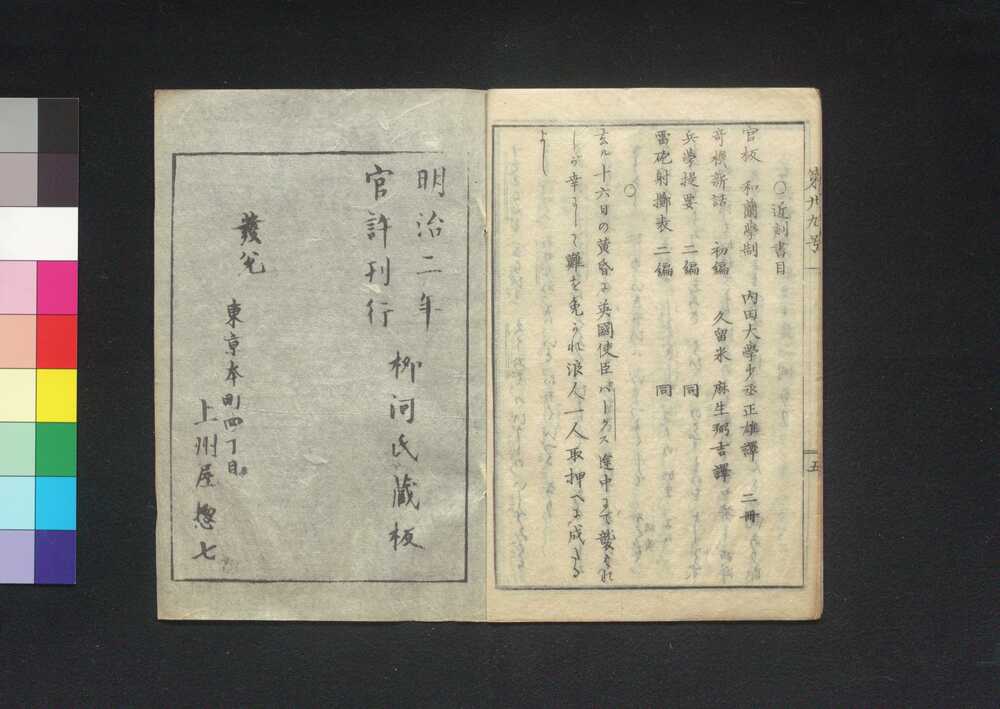 第廿九号
五
○近刻書目
官板 和蘭學制 内田大學少丞正雄譯 二冊
奇機新話 初編 久留米 麻生弼吉譯
兵學提要 二編 同
雷砲射擲表 二編 同
○
去ル十六日の黄昏に英國使臣パークス途中にて襲はれ
しが幸にして難を免かれ浪人一人取押へに成たる
よし
明治二年
官許刊行 柳河氏蔵板
發兌 東京本町四丁目
上州屋惣七